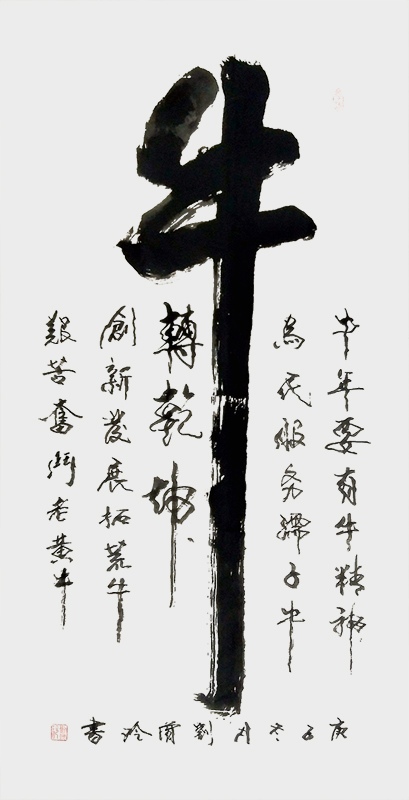 牛
轉乾坤
牛年要有牛精神
為民服务孺子牛
創新發展拓荒牛
艱苦奮鬥老黄牛
庚子冬月劉爾玲書